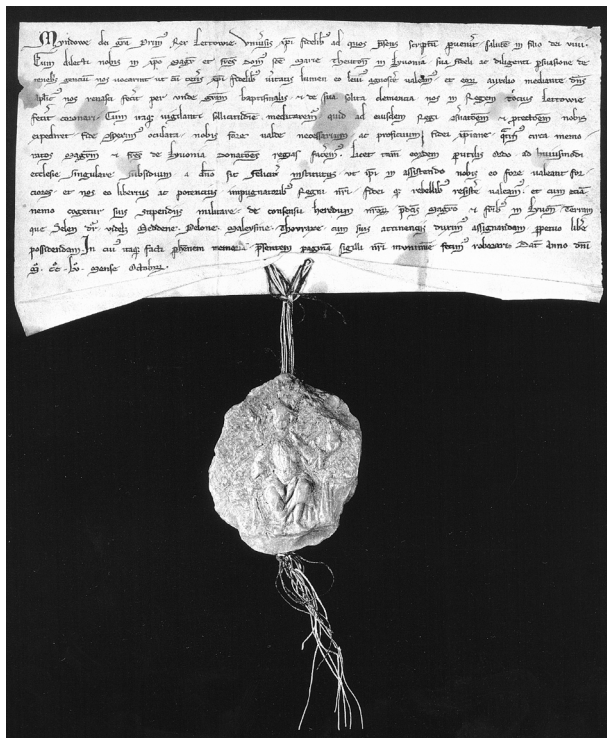 Myndowe dei gra Prim Rex Lettowie Univsis xpi fidelib ad quos psens scriptu puenit salute in filio dei vivi.
Cum dilecti nobis in xpo Magr et fres dom sce Marie Theuton in Lyvonia sua fideli ac diligenti psuasione de
tenebis gentium nos vocarint ut cu ceris xpi fidelib vitatis lumen eo leui agnosce valem et eor auxilio mediante dns
nos renasci fecit per unde gram baptismalis et de sua solita clemencia nos in Regem tocius Lettowie
fecit coronari. Cum itaq vigilanti sollicitudine quid ad eiusdem Regi et
expediret fide oculata nobis fore valde necessarium ac proficiuu fidei xpiane circa memo
ratos Magrm et fres de Lyvonia donacoes regias facem. Licet tam eordem ordo ad huiusmodi
ecclesie singulare subsidium a dno sit felicit institutus ut ipi in assistendo nobis eo fore valeant for
ciores et nos eo libertus ac potencius impugnatorib Regni nri fidei q rebellib resiste valeam. et cum eciã
nemo cogetur suis stipendiis militare de consensu heredum nror pdcis magro et frib in Lyvon Terram
que Selen dr videl Meddene Pelone Maleysine Thovraxe cum suis attinenciis duxim assignandam ppetuo libe
possidendam. In cui itaq facti phennem memoria psentem pagina sigilli nri munimine fecim roborari. Dat anno dni
M. CC. LV. Mense Octobri.